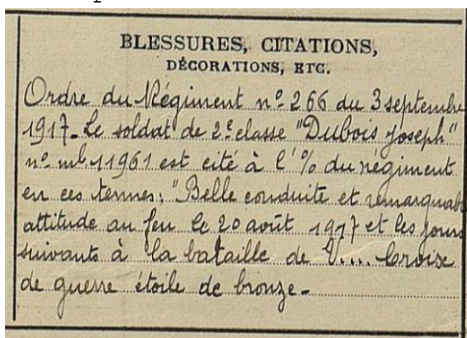 BLESSURES, CITATIONS,
DÉCORATIONS, ETC.
Ordre du Régiment nº 266 du 3 septembre
1917 - Le soldat de 2e classe "Dubois Joseph"
nº ml 11961 est cité à l'% du régiment
en ces termes: "Belle conduite et remarquab
attitude au feu le 20 août 1917 et les jours
suivants à la bataille de V.... Croix
de guerre étoile de bronze -